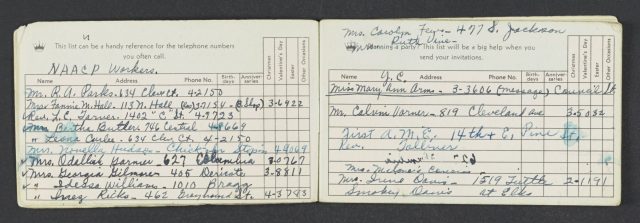 This list can be a handy reference for the telephone numbers
you often call.
NAACP Workers.
Name Address Phone No. Birthdays Anniversaries Christmas Valentine's Day Easter Other Occasions
Mrs. R.A. Parks. 634 Clev Ct. 4-2150
Mrs Fannie M. Hall. 113 N. Hall 3-6922
Rev. L.C. Farver. 1402 "C" St. 4-9723
Mrs Bertha Butler 746 Central 48669
" Leona Curle. 634 Clev Ct. 4-2150
Mrs. Novella Hudson - 49069
Mrs. Odallie Garner - 627 Columbia 3-0767
Mrs. Georgia Gilmore - 405 Dericote 3-8811
" Idessa Williams - 1010 Bragg
" Inez Ricks - 462 Grayhound St. 4-3783
Mrs. Carolyn 477 S. Jackson
Ruth
Planning a party? This list will be a big help when you
send your invitations.
Name Address Phone No. Birthdays Anniversaries Christmas Valentine's Day Easter Other Occasions
Y.C.
Miss Mary Ann Arms - 3-3606 (message) Council St
Mr. Calvin Varner - 819 Cleveland Ave 3-5032
First A.M.E. 14th & E. Pine St.
Rev.
Mrs.
Mrs. Irene Davis - 1519 Tuttle 2-1191
Smokey Davis at Elks